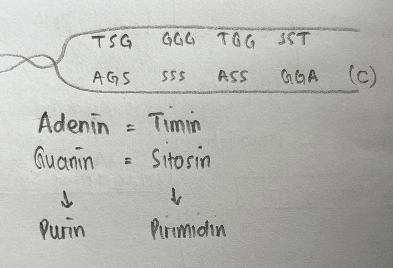 TSG GGG TGG SST
AGS SSS ASS GGA (C)
Adenin = Timin
Guanin = Sitosin
↓ ↓
Purin Pirimidin